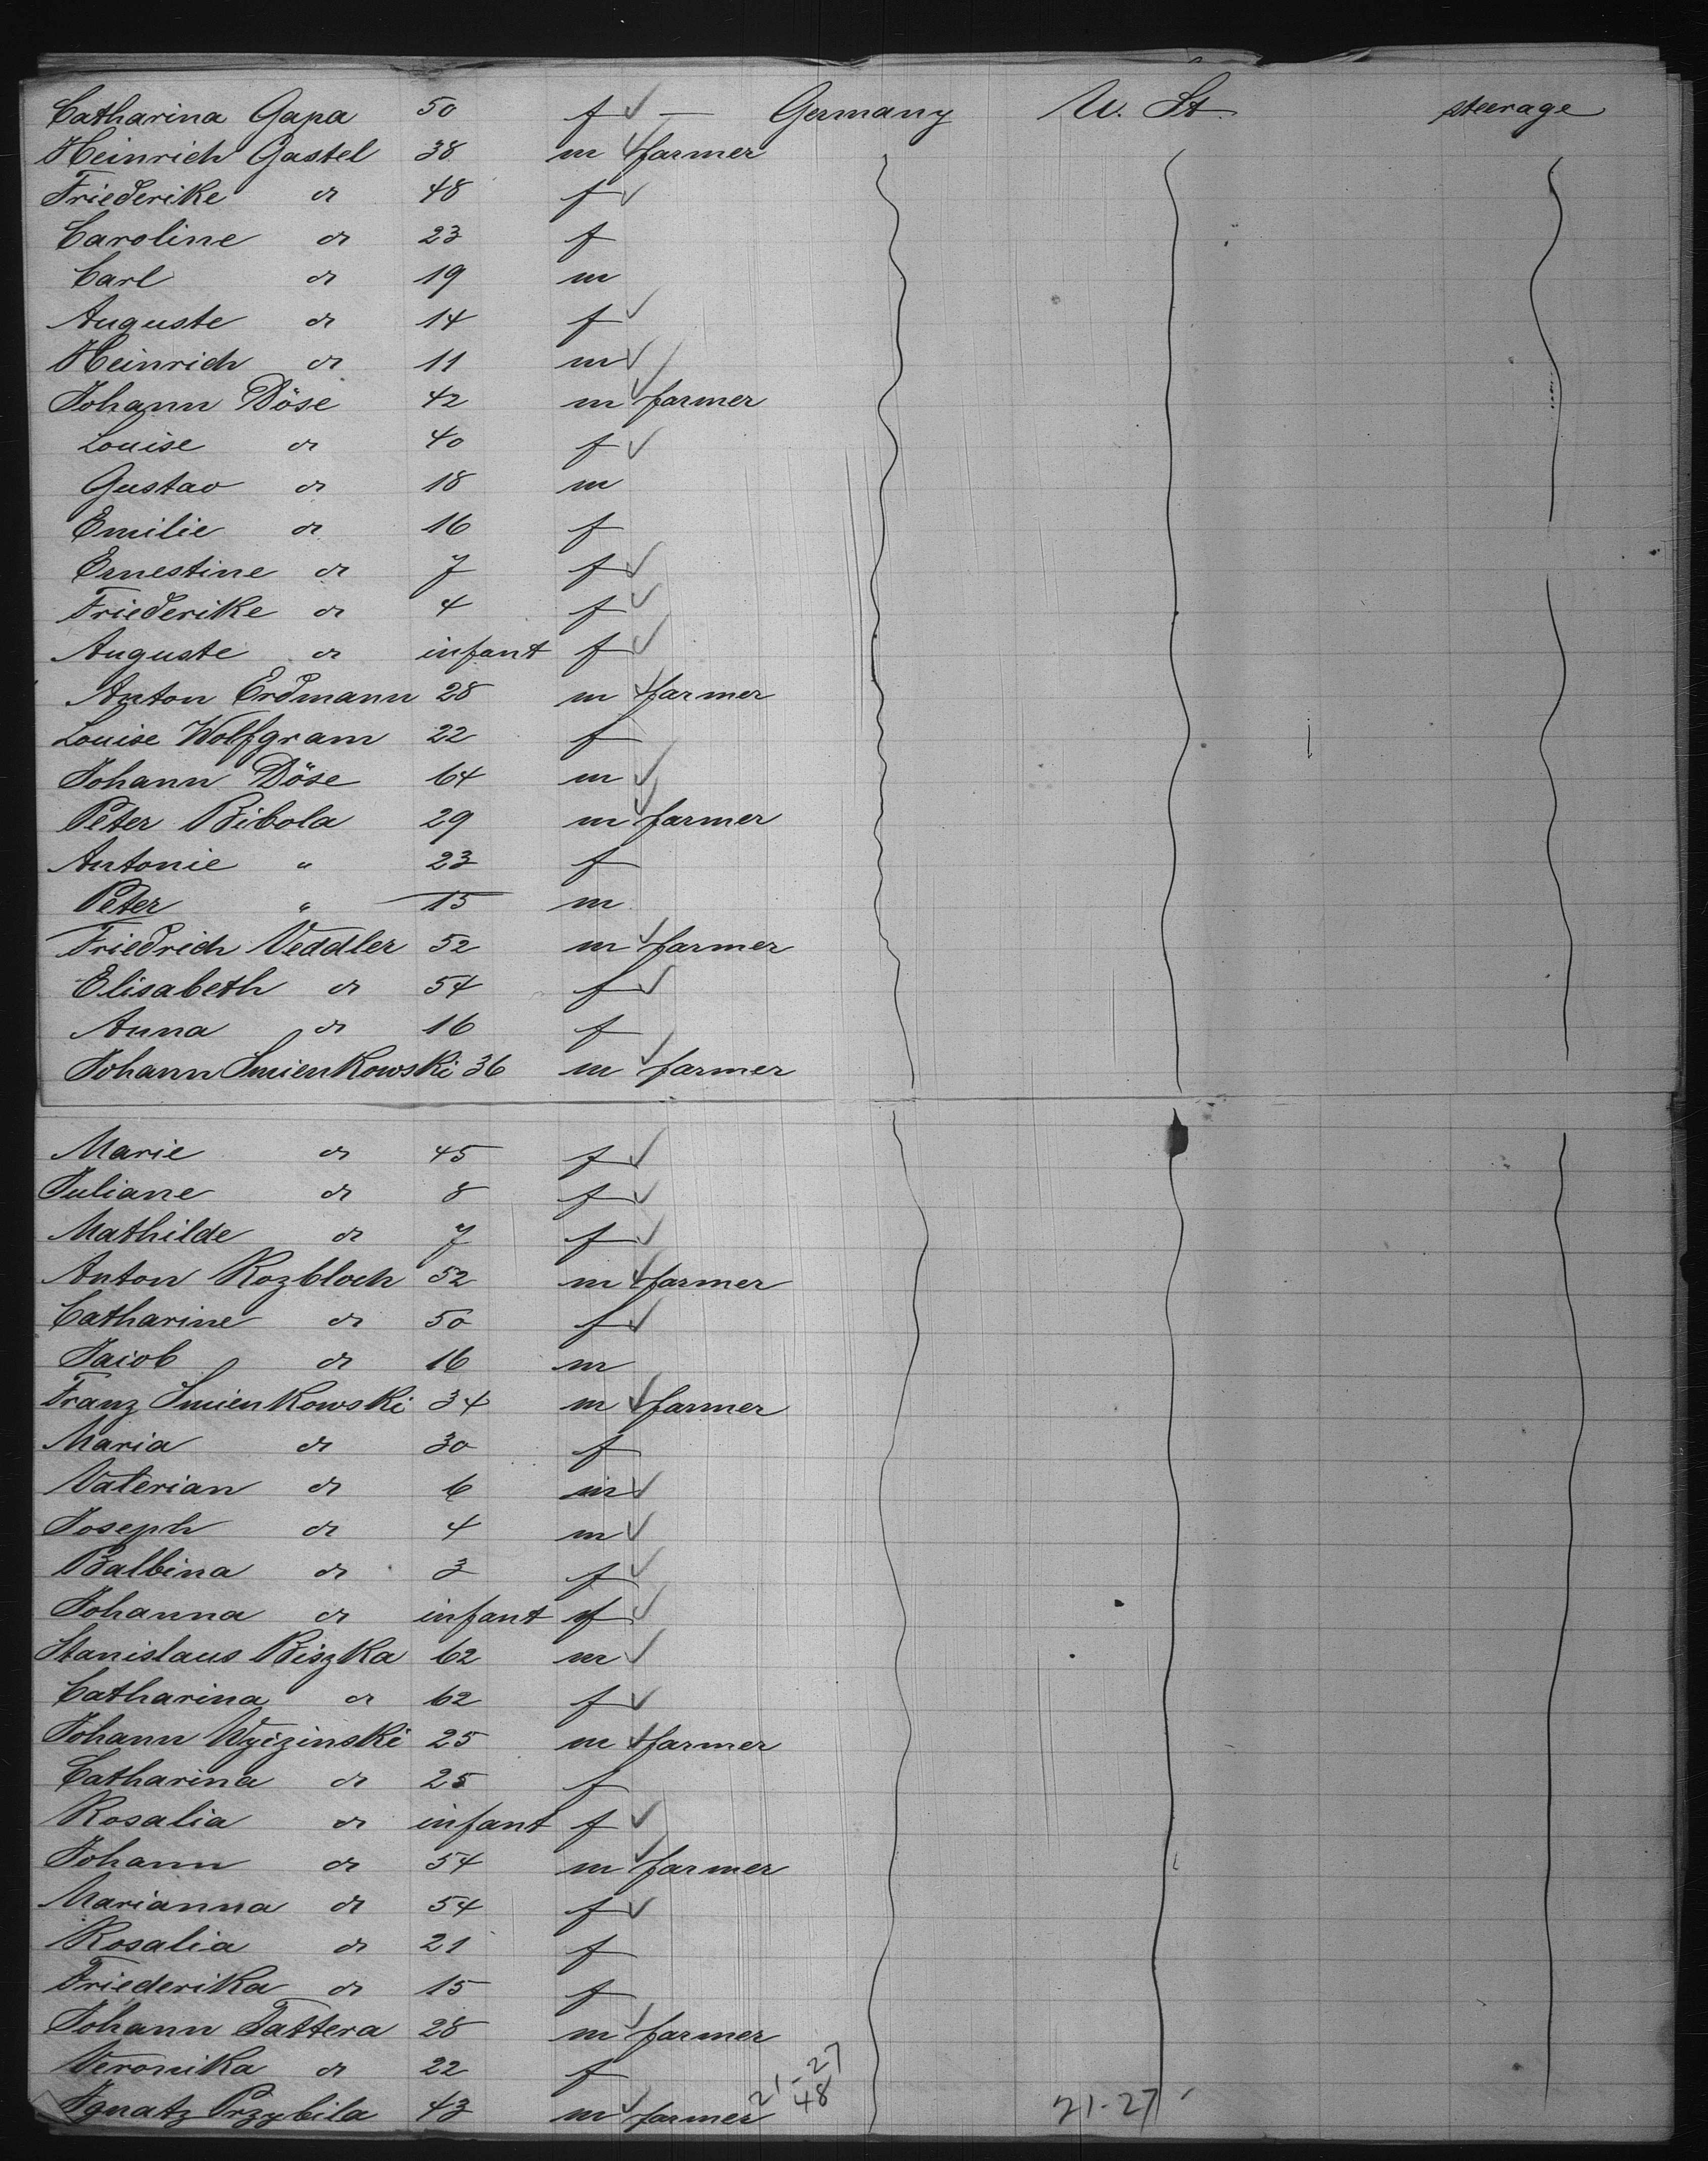 Catharina Gapa 50 f — Germany U. St. steerage
Heinrich Gastel 38 m farmer
Friederike do 48 f
Caroline do 23 f
Carl do 19 m
Auguste do 14 f
Heinrich do 11 m
Johann Döse 42 m farmer
Louise do 40 f
Gustav do 18 m
Emilie do 16 f
Ernestine do 7 f
Friederike do 4 f
Auguste do infant f
Anton Erdmann 28 m farmer
Louise Wolfgram 22 f
Johann Döse 64 m
Peter Bibola 29 m farmer
Antonie " 23 f
Peter " 15 m
Friedrich Veddler 52 m farmer
Elisabeth do 54 f
Anna do 16 f
Johann Smienkowski 36 m farmer
Marie do 45 f
Juliane do 8 f
Mathilde do 7 f
Anton Rozbloch 52 m farmer
Catharine do 50 f
Jaiob do 16 m
Franz Smienkowski 34 m farmer
Maria do 30 f
Valerian do 6 m
Joseph do 4 m
Balbina do 3 f
Johanna do infant f
Stanislaus Biszka 62 m
Catharina do 62 f
Johann Wyizinski 25 m farmer
Catharina do 25 f
Rosalia do infant f
Johann do 54 m farmer
Marianna do 54 f
Rosalia do 21 f
Friederika do 15 f
Johann Tattera 28 m farmer
Veronika do 22 f
Ignatz Przybila 43 m farmer
21-27
48
21-27